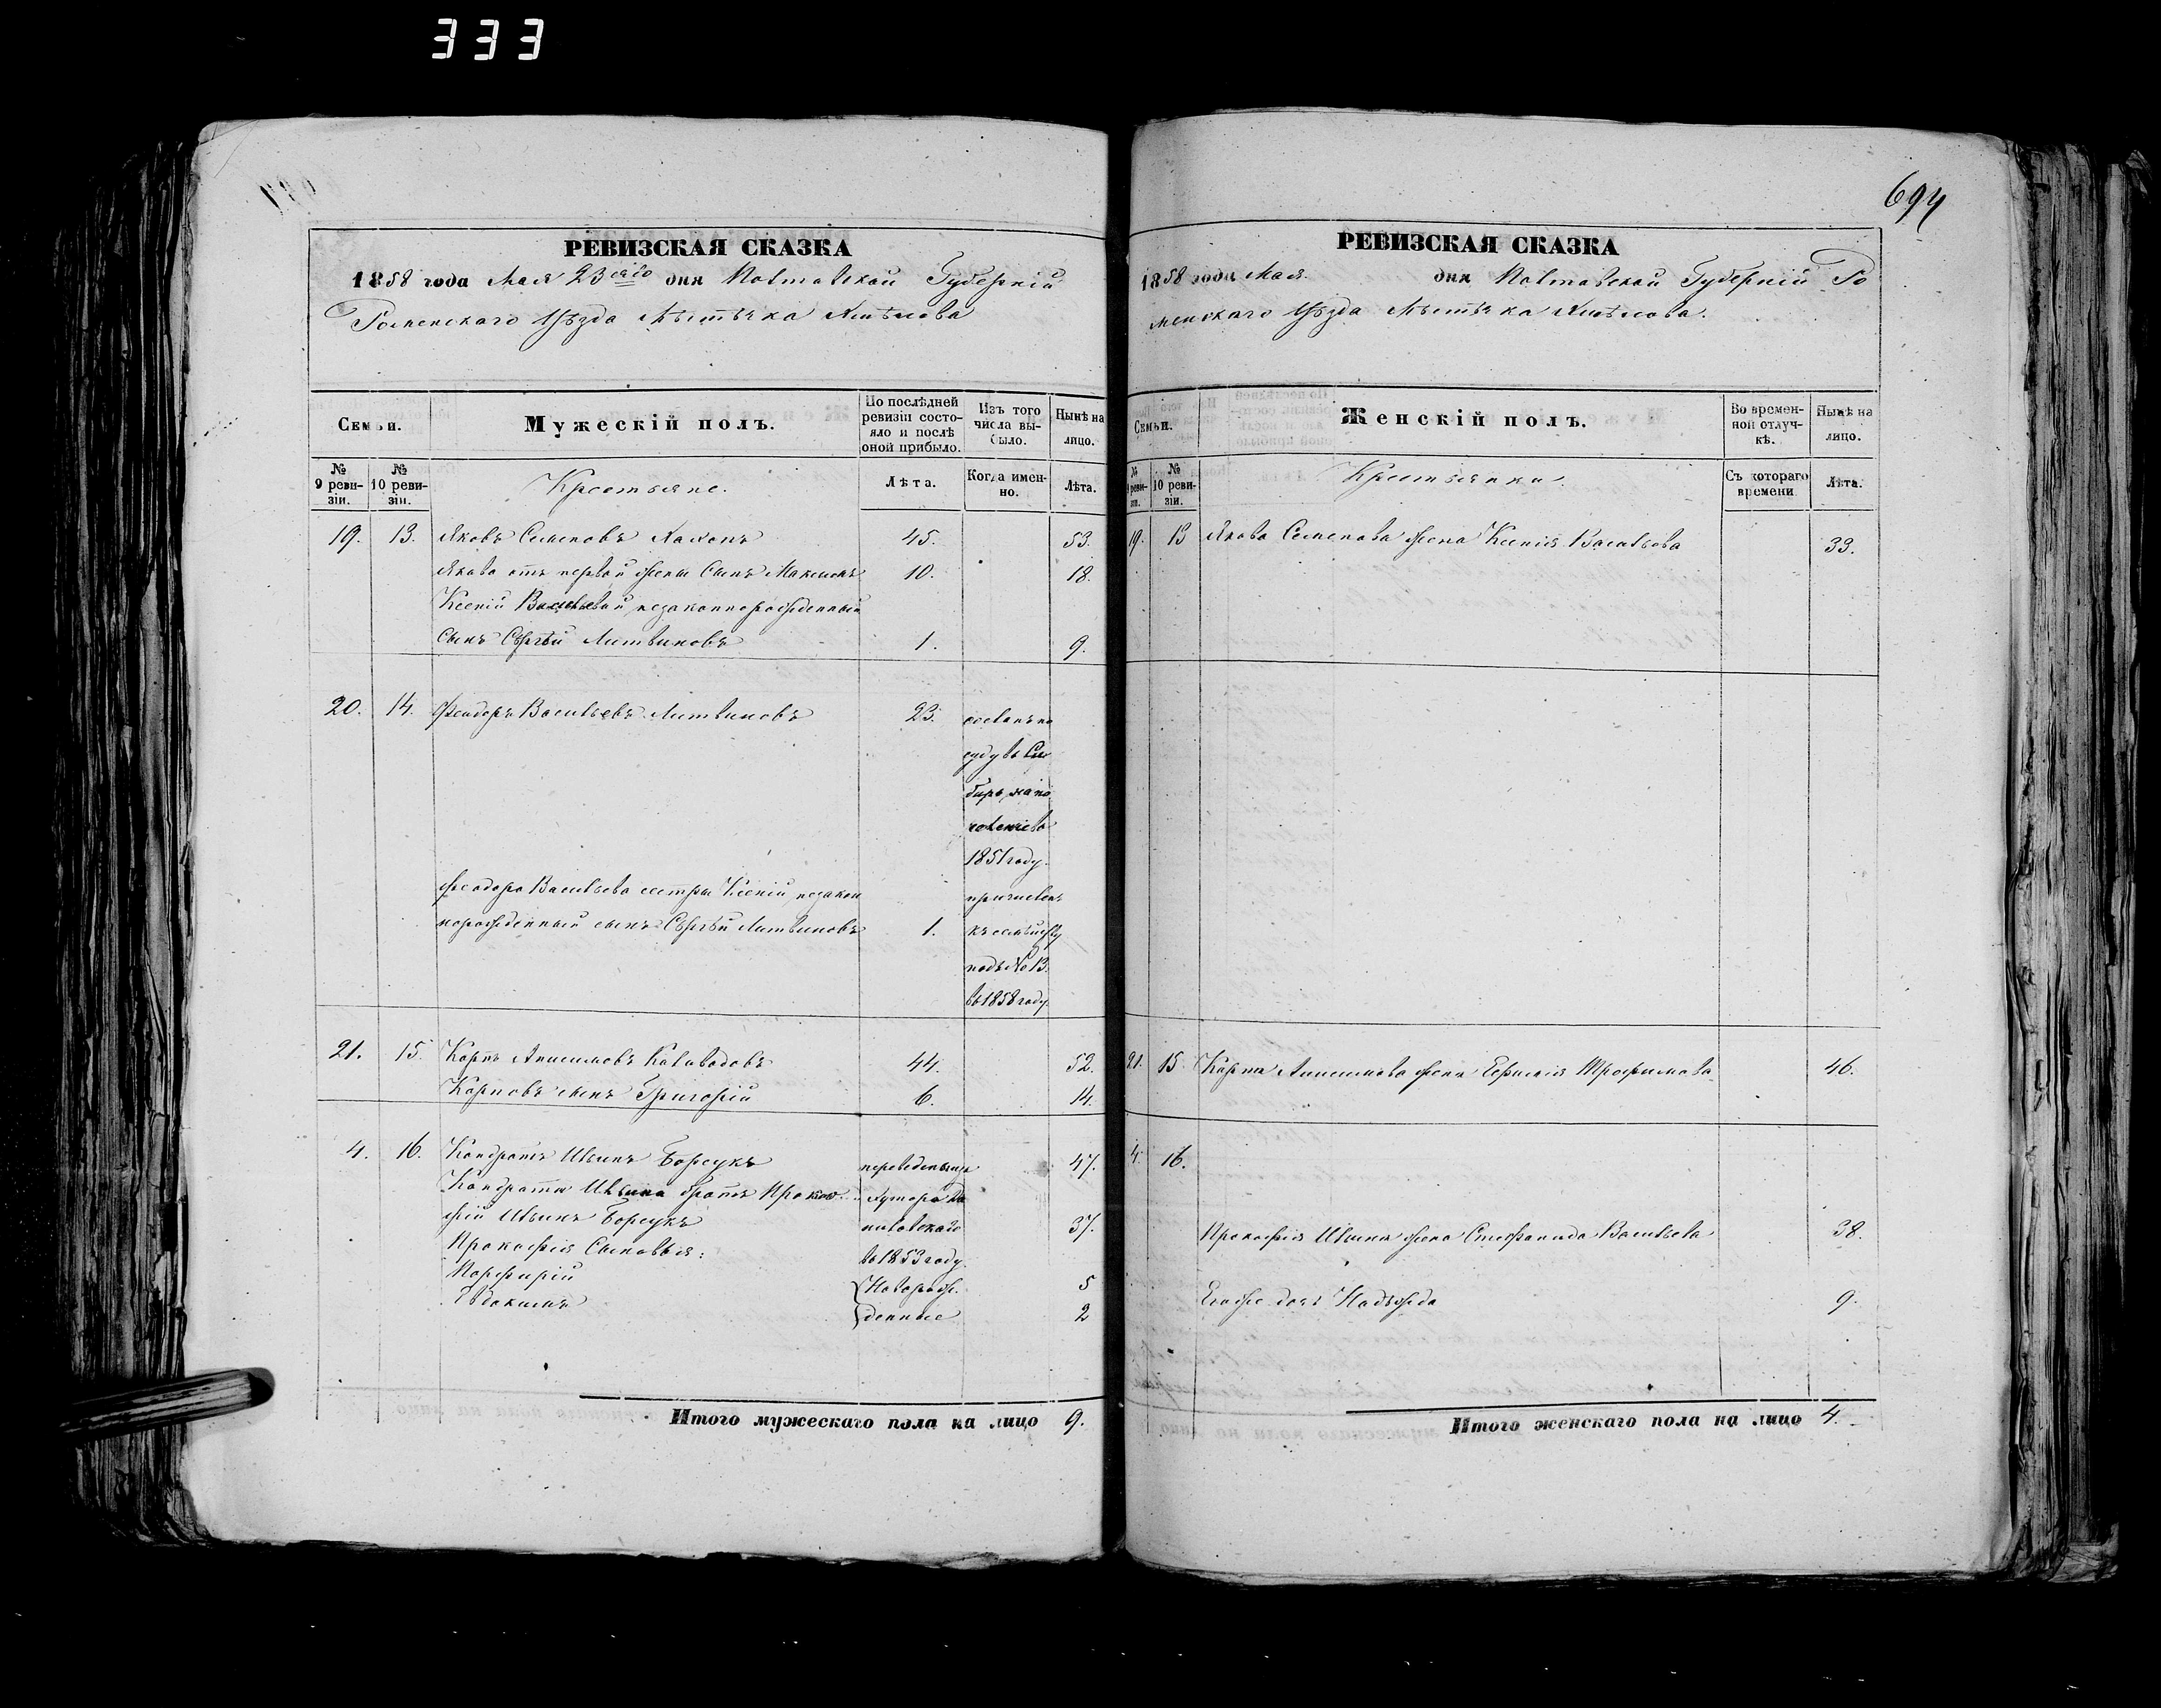 333
694
РЕВИЗСКАЯ СКАЗКА
1858 года Мая 23 го дня Полтавской Губерніи
Роменскаго Уѣзда Мѣстѣчка Хмѣлова
Семьи.
Мужескій полъ.
По послѣдней ревизіи состояло и послѣ оной прибыло.
Изъ того числа выбыло.
Нынѣ на лицо.
№ 9 ревизіи.
№ 10 ревизіи.
Крестьяне.
Лѣта.
Когда именно.
Лѣта.
19. 13. Яковъ Семеновъ 45. 53.
Якова отъ первой жены Сынъ Максимъ 10. 18.
Ксеніи Васильевой незаконнорожденный
сынъ Сѣргѣй Литвиновъ 1. 9.
20. 14. Феодоръ Васильевъ Литвиновъ 23. сосланъ по
суду въ Си
бирь на по
селеніе въ
1851 году.
Феодора Васильева сестры Ксеніи незакон
норожденный сынъ Сѣргѣй Литвиновъ 1.
причислен
къ семѣйству
подъ № 13.
въ 1858 году.
21. 15. Карпъ Анисимовъ Коливодовъ 44. 52.
Карповъ сынъ Григорій 6. 14.
4. 16. Кондратъ Ивынъ Борсукъ переведены изъ 47.
Кондрата Ивына братъ Проко Хутора
фій Ивынъ Борсукъ 37.
Прокофія Сыновья: въ 1853 году.
Порфирій Новорож- 5
Евдокимъ денные 2
Итого мужескаго пола на лицо 9.
РЕВИЗСКАЯ СКАЗКА
1858 года Мая дня Полтавской Губерніи Ро
менскаго Уѣзда Мѣстѣчка Хмѣлова.
Семьи.
Женскій полъ.
Во временной отлучкѣ.
Нынѣ на лицо.
№ 9 ревизіи.
№ 10 ревизіи.
Крестьянки.
Съ котораго времени
Лѣта.
19. 13 Якова Семенова жена Ксенія Васильева 33.
21. 15. Карпа Анисимова жена Трофимова 46.
4. 16.
Прокофія Ивына жена Стефанида Васильева 38.
Егоже дочь Надежда 9.
Итого женскаго пола на лицо 4.